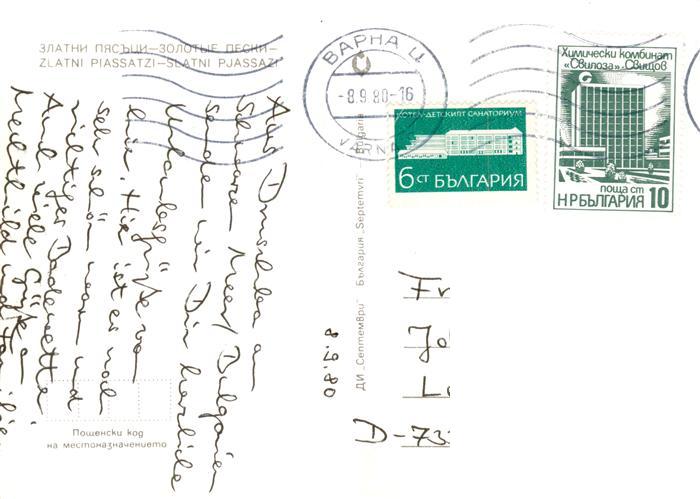 ЗЛАТНИ ПЯСЪЦИ—ЗОЛОТЫЕ ПЕСКИ—
ZLATNI PIASSATZI—SLATNI PJASSAZI
ВАРНА Ц
-8.9.80-16
VARNA
ДЕТСКИЯТ САНАТОРИУМ
6 СТ БЪЛГАРИЯ
Химически комбинат
„Свилоза"-Свищов
поща ст
НР БЪЛГАРИЯ 10
Aus Drushba am
Schwarzen Meer/Bulgarien
senden wir Dir herzliche
Urlaubsgrüße von
hier. Hier ist es noch
sehr schön warm und
richtiges Badewetter
Auch viele Grüße
Mechthild und Familie
8.9.80
ДИ „Септември" България „Septemvri" — Bulgaria
Fr
Jo
L
D-73
Пощенски код
на местоназначението